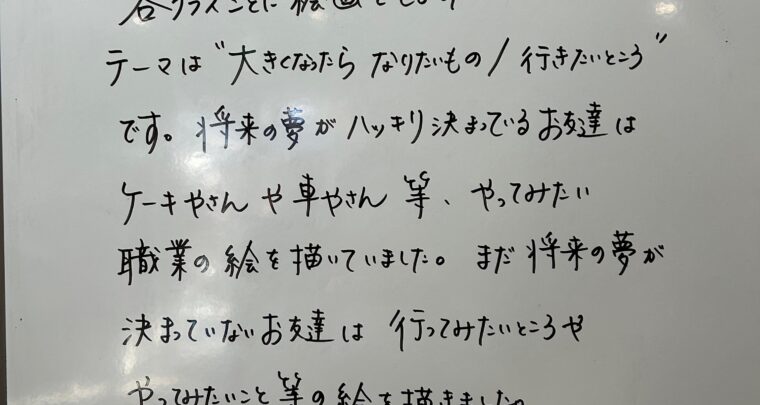 各クラスごとに絵画をします
テーマは"大きくなったら なりたいもの/行きたいところ"
です。将来の夢が ハッキリ決まっているお友達は
ケーキやさん や 車やさん 等、やってみたい
職業の絵を描いていました。まだ将来の夢が
決まっていないお友達は 行ってみたいところや
やってみたいこと等の絵を描きました。